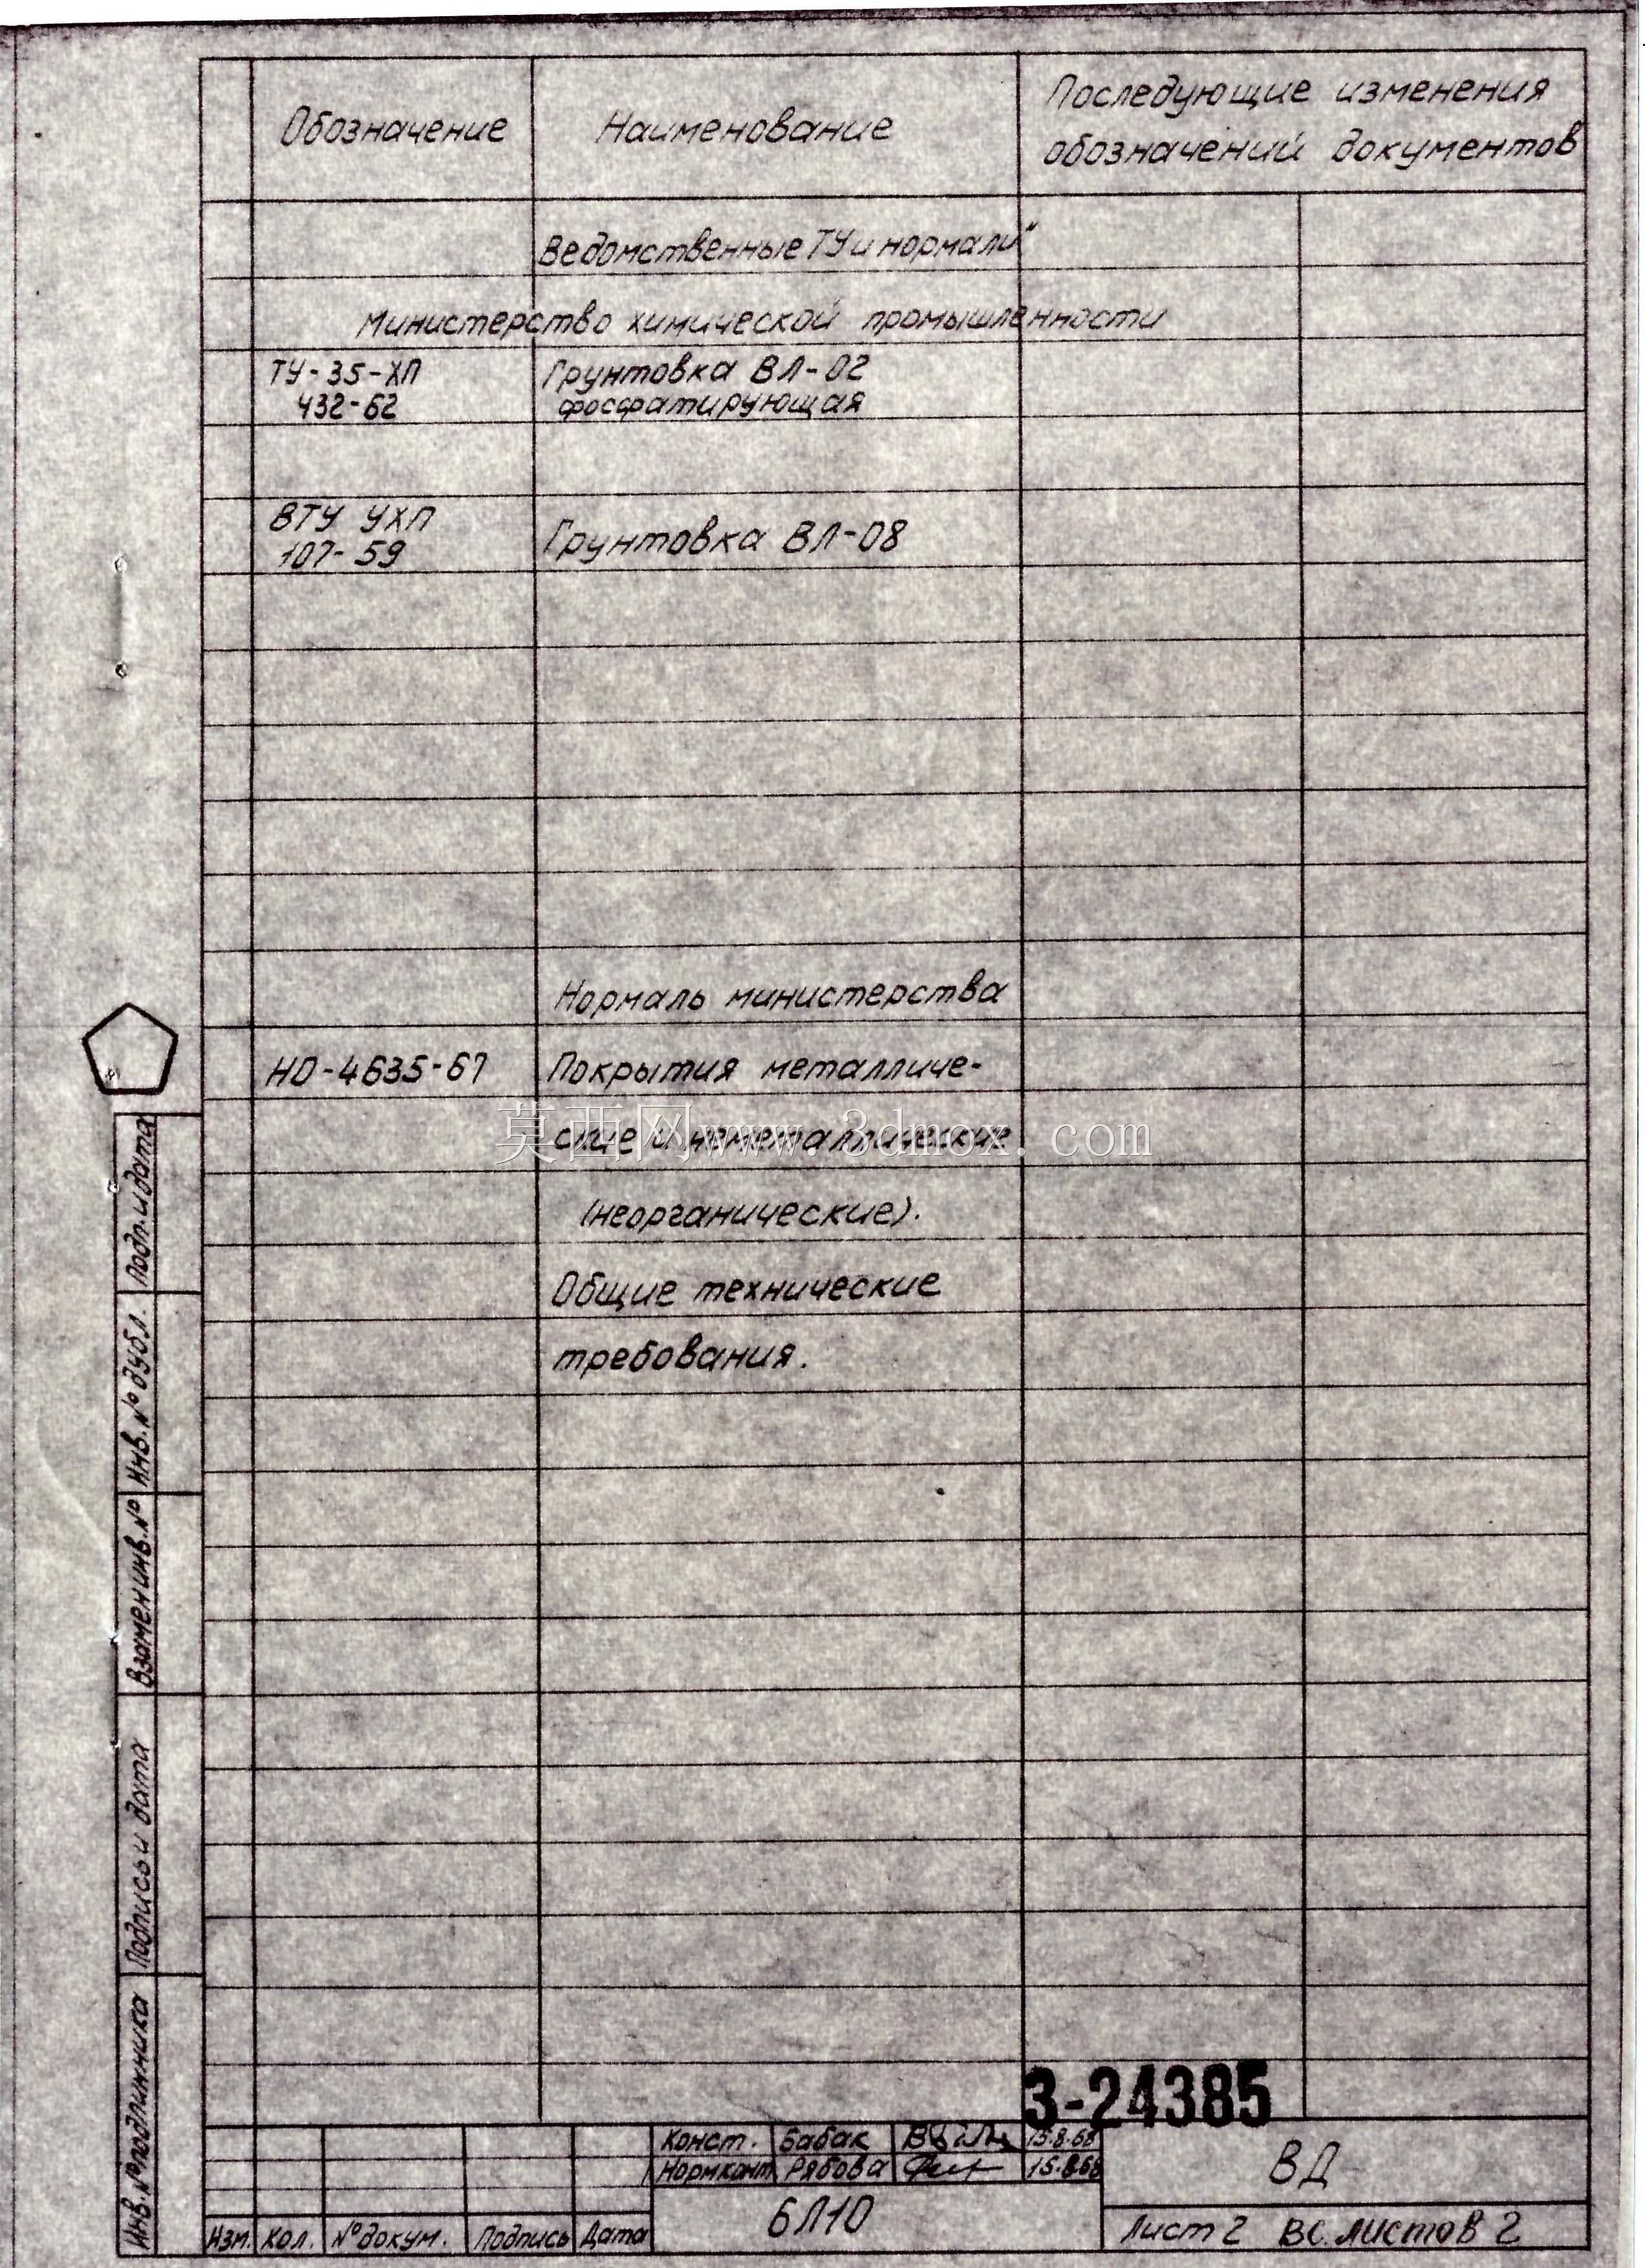 Обозначение
Наименование
Последующие изменения
обозначений документов
Ведомственные ТУ и нормали"
Министерство химической промышленности
ТУ-35-ХП
432-62
Грунтовка ВЛ-02
фосфатирующая
ВТУ УХП
107-59
Грунтовка ВЛ-08
Нормаль министерства
НО-4635-67
Покрытия металличе-
ские и неметаллические
莫西网www.3dmox.com
(неорганические).
Общие технические
требования.
Подп. и дата
Инв. № дубл.
Взамен инв. №
Подпись и дата
Инв. № подлинника
3-24385
Конст. Бабак 15.8.68
Нормконт Рябова 15.8.68
ВД
6Л10
Изм. Кол. № докум. Подпись Дата
Лист 2 Вс. листов 2